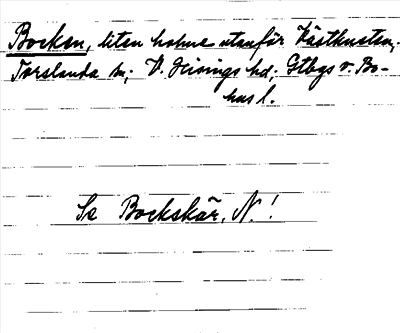 Bocken, liten holme utanför Västkusten,
Torslanda sn; V. Hisings hd; Gtbgs o. Bo-
hus l.
Se Bockskär, N.!